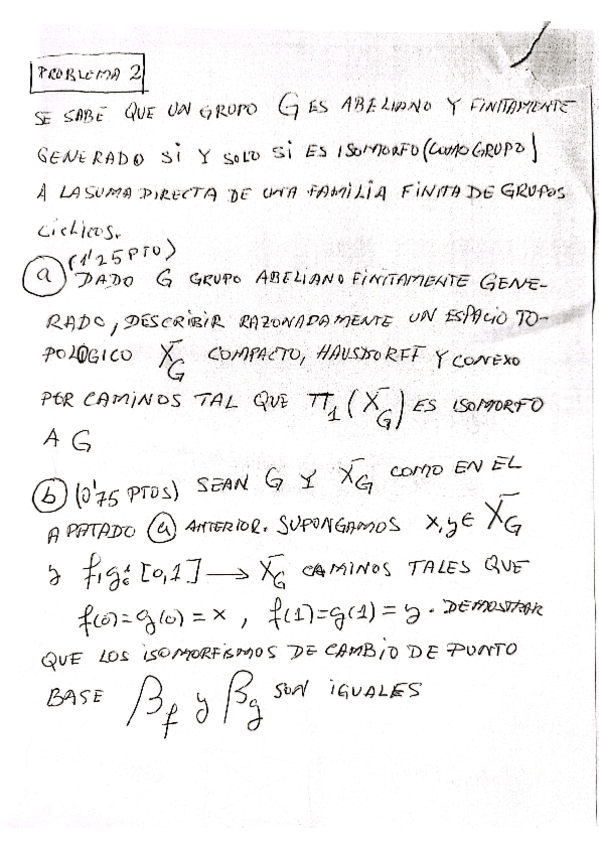 PROBLEMA 2
SE SABE QUE UN GRUPO G ES ABELIANO Y FINITAMENTE
GENERADO SI Y SOLO SI ES ISOMORFO (COMO GRUPO)
A LA SUMA DIRECTA DE UNA FAMILIA FINITA DE GRUPOS
CÍCLICOS.
(1'25 PTO)
(a) DADO G GRUPO ABELIANO FINITAMENTE GENE-
RADO, DESCRIBIR RAZONADAMENTE UN ESPACIO TO-
POLÓGICO X_G COMPACTO, HAUSDORFF Y CONEXO
POR CAMINOS TAL QUE π_1(X_G) ES ISOMORFO
A G
(b) (0'75 PTOS) SEAN G Y X_G COMO EN EL
APATADO (a) ANTERIOR. SUPONGAMOS x, y ∈ X_G
y f, g: [0,1] → X_G CAMINOS TALES QUE
f(0)=g(0)=x, f(1)=g(1)=y. DEMOSTRAR
QUE LOS ISOMORFISMOS DE CAMBIO DE PUNTO
BASE β_f y β_g SON IGUALES